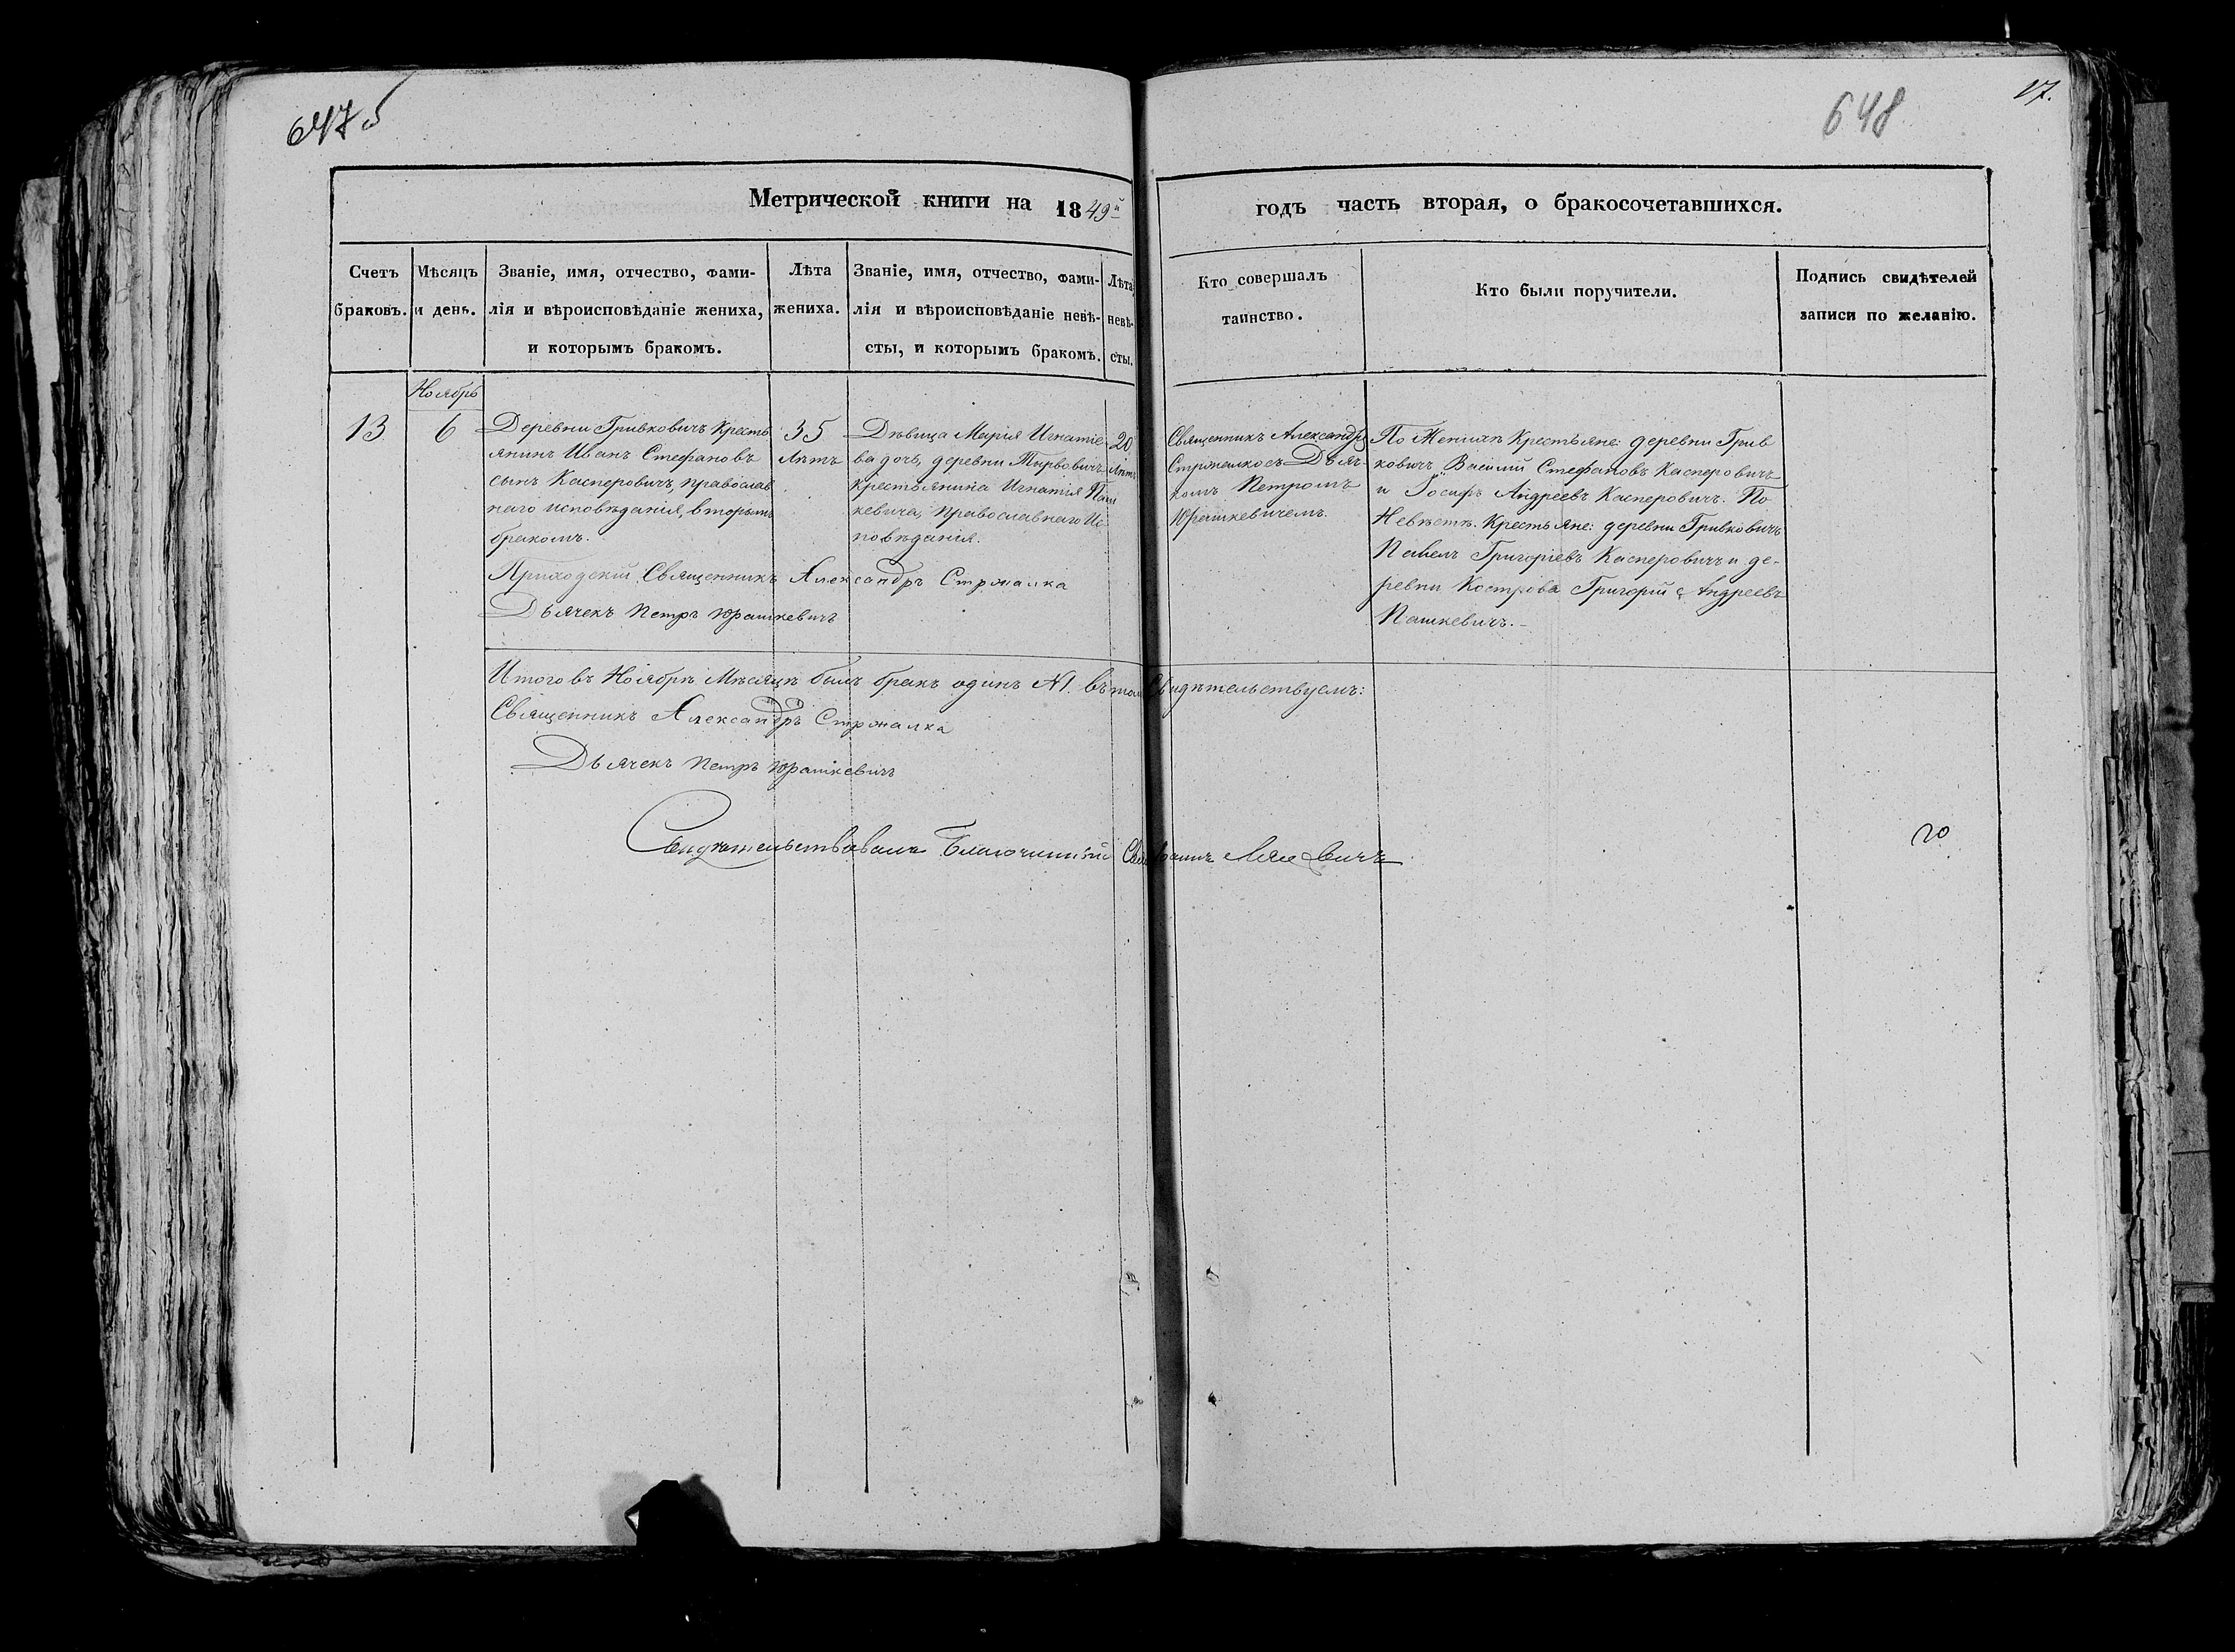 647 об
648
17.
Метрической книги на 1849й
годъ часть вторая, о бракосочетавшихся.
Счетъ
браковъ.
Мѣсяцъ
и день.
Званіе, имя, отчество, фами-
лія и вѣроисповѣданіе жениха,
и которымъ бракомъ.
Лѣта
жениха.
Званіе, имя, отчество, фами-
лія и вѣроисповѣданіе невѣ-
сты, и которымъ бракомъ.
Лѣта
невѣ-
сты.
Кто совершалъ
таинство.
Кто были поручители.
Подпись свидѣтелей
записи по желанію.
Ноябрь
13
6
Деревни Гривковичъ Кресть
янинъ Иванъ Стефановъ
сынъ Касперовичъ, православ
наго исповѣданія, вторымъ
бракомъ.
35
Лѣтъ
Дѣвица Марія Игнатіе
ва дочь, деревни
крестьянина Игнатія Паш
кевича, Православнаго Ис
повѣданія.
20
Лѣтъ
Священникъ Александръ
Стржалко съ Дьяч-
комъ Петромъ
Юрашкевичемъ.
По Женихѣ Крестьяне: деревни Грив
ковичъ Василій Стефановъ Касперовичъ
и Іосифъ Андреевъ Касперовичъ. По
Невѣстѣ. Крестьяне: деревни Гривковичъ
Павелъ Григоріевъ Касперовичъ и де-
ревни Кострова Григорій Андреевъ
Пашкевичъ.-
Приходскій Священникъ Александръ Стржалка
Дьячекъ Петръ Юрашкевичъ
Итого въ Ноябрѣ Мѣсяцѣ былъ бракъ одинъ №1. въ томъ Свидѣтельствуемъ:
Священникъ Александръ Стржалка
Дьячекъ Петръ Юрашкевичъ
Свидѣтельствовалъ Благочинный